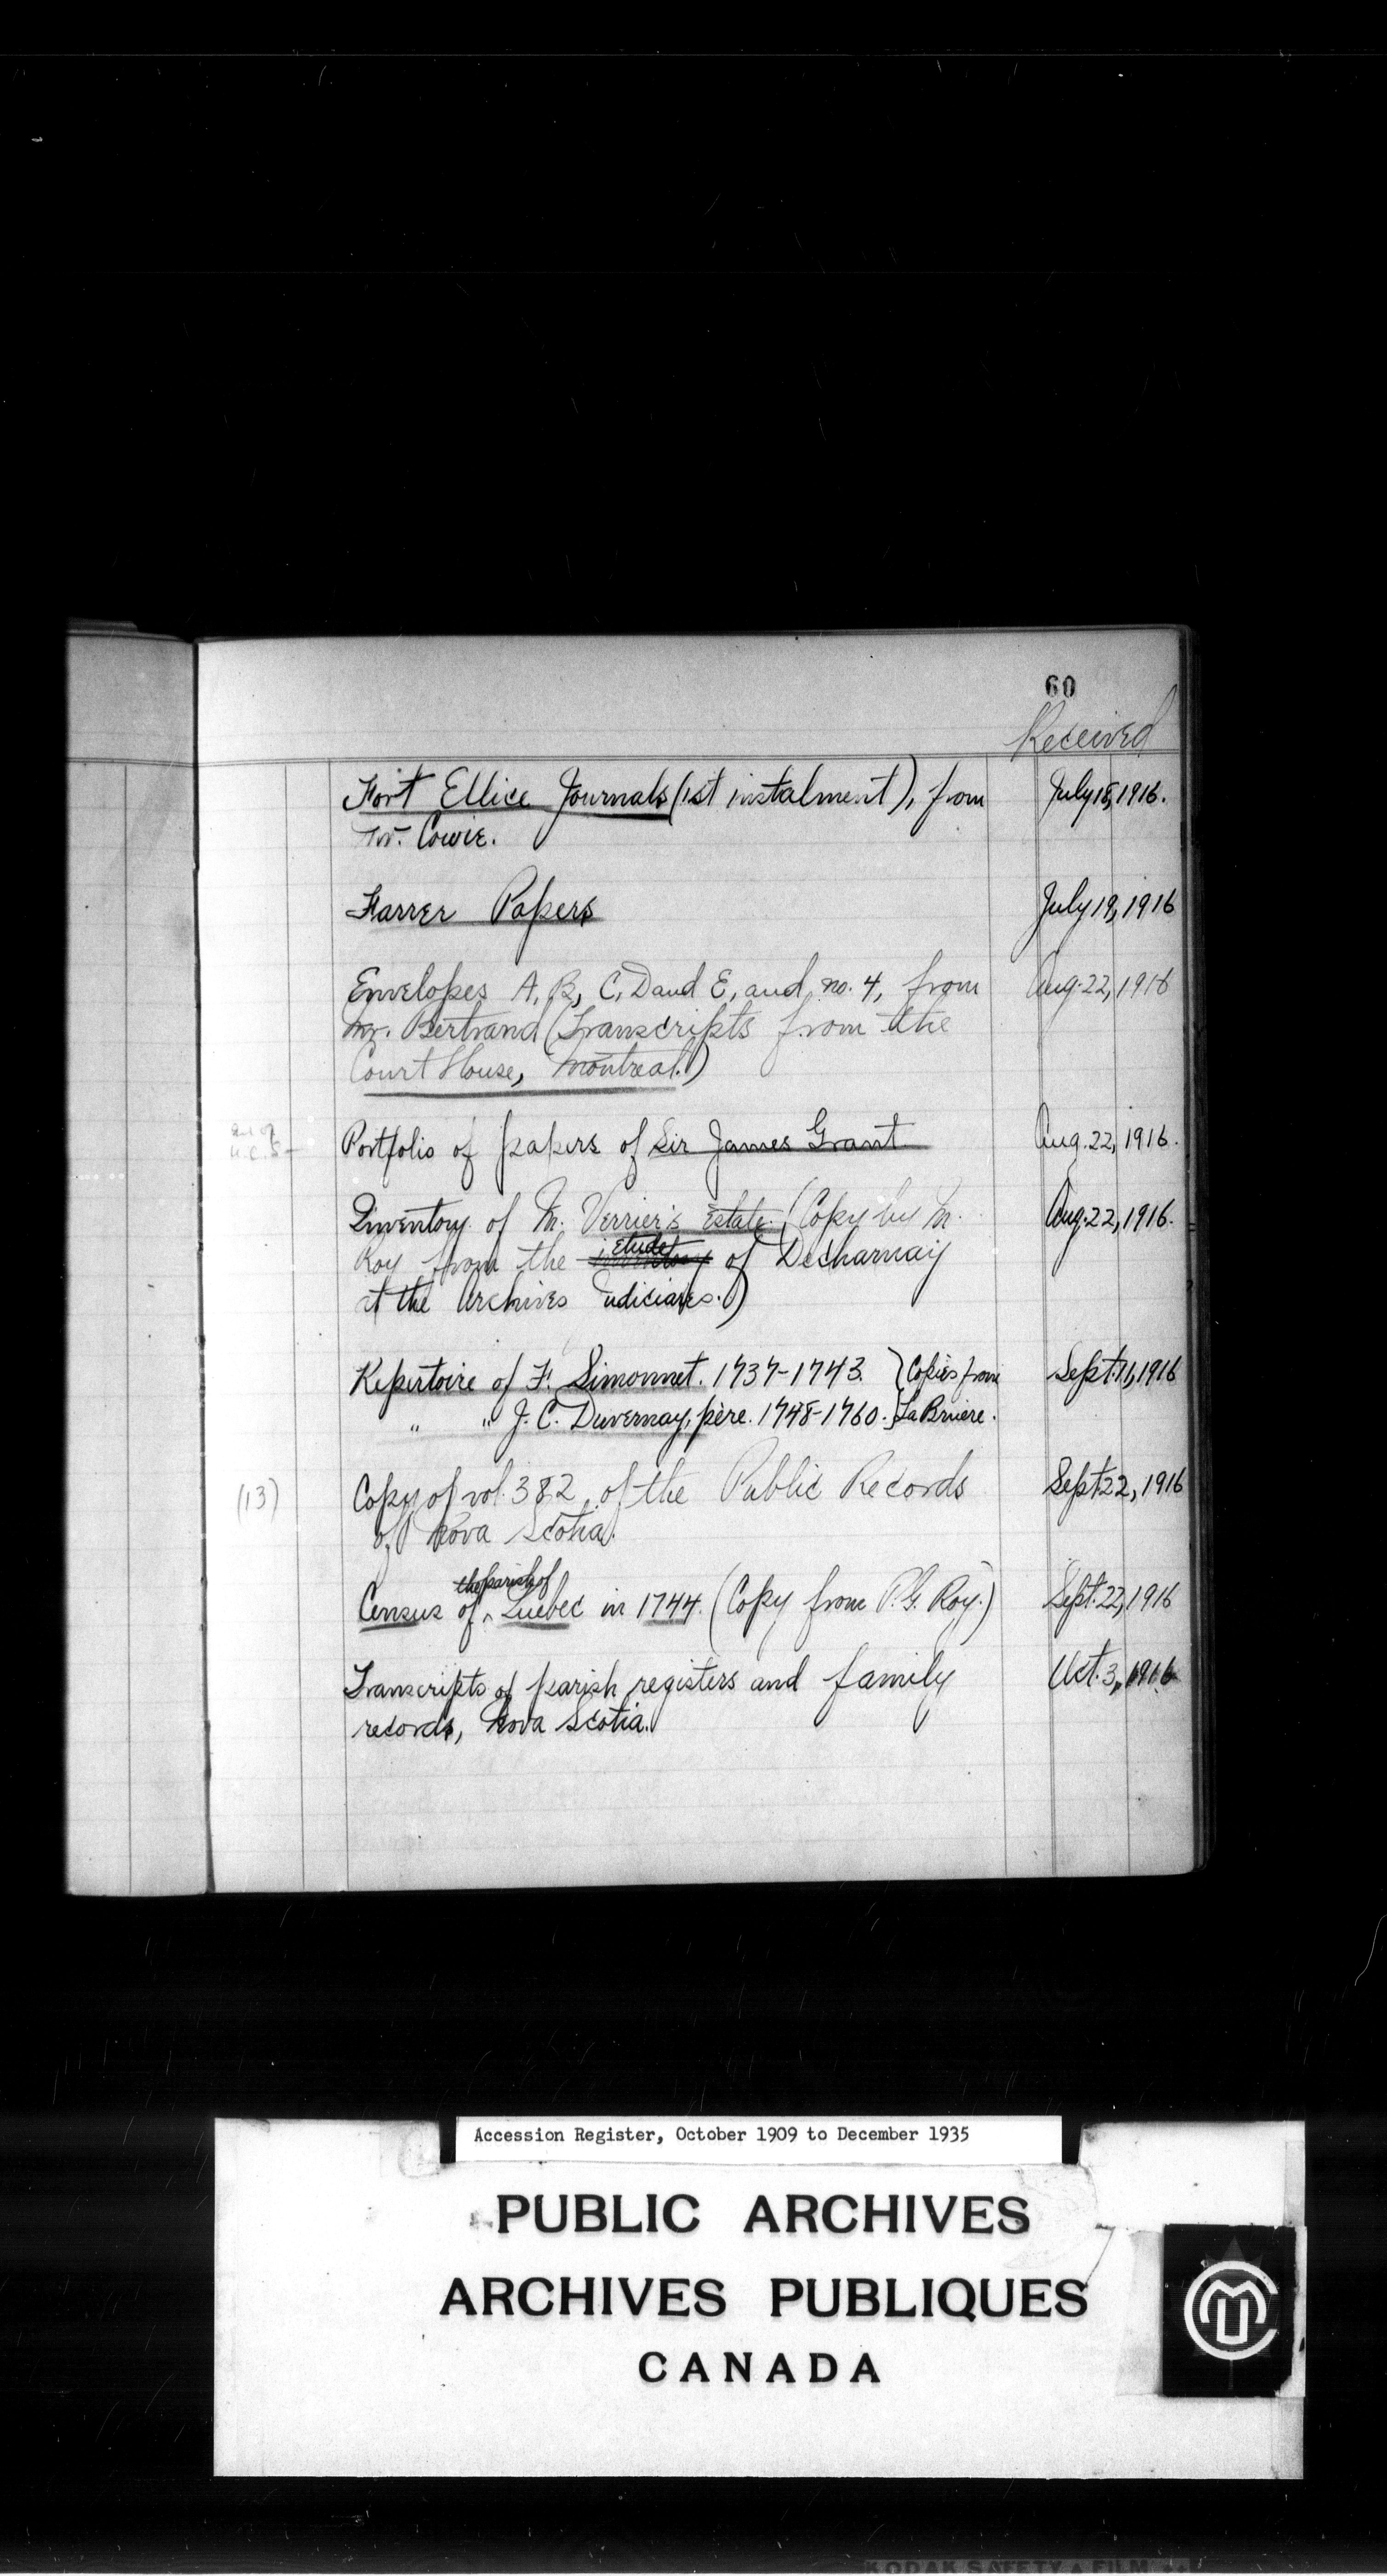 60
Received
Fort Ellice Journals (1st instalment), from July 18, 1916.
Mr. Cowie.
Farrer Papers July 19, 1916
Envelopes A, B, C, D and E, and no. 4, from Aug. 22, 1916
Mr. Bertrand (Transcripts from the
Court House, Montreal.)
Portfolio of papers of Sir James Grant Aug. 22, 1916.
Inventory of M. Verrier's Estate. (Copy by M. Aug. 22, 1916.
etude
Roy from the inventory of Decharnay
at the Archives Judiciaires.)
Repertoire of F. Simonnet. 1737-1743. } Copies from Sept. 11, 1916
" " J. C. Duvernay, père. 1748-1760. } La Bruere.
(13) Copy of vol. 382 of the Public Records Sept. 22, 1916
of Nova Scotia.
the parish of
Census of ^ Quebec in 1744. (Copy from P. G. Roy.) Sept. 22, 1916
Transcripts of parish registers and family Oct. 3, 1916
records, Nova Scotia.
Accession Register, October 1909 to December 1935
PUBLIC ARCHIVES
ARCHIVES PUBLIQUES
CANADA
KODAK SAFETY ▲ FILM